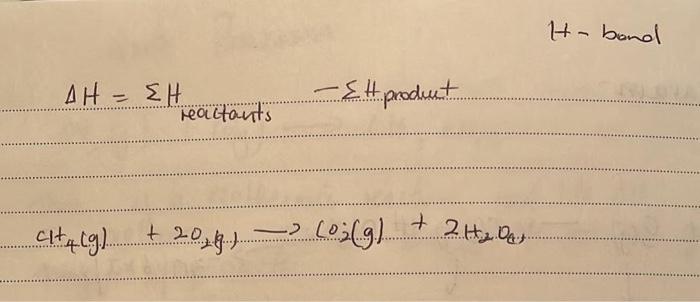 H - bond
ΔH = ΣH reactants - ΣH product
CH₄(g) + 2O₂(g) → CO₂(g) + 2H₂O(l)